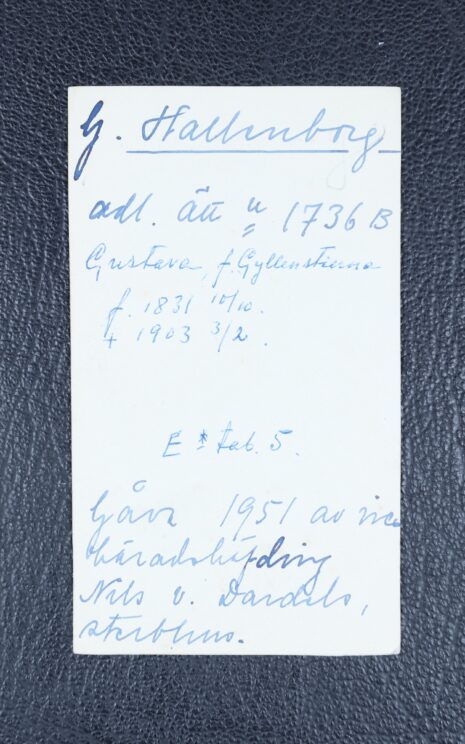 G. Hallenborg
adl. ätt n 1736 B
Gustava, f. Gyllenstierna
f. 1831 10/10.
+ 1903 3/2.
E * tab. 5.
Gåva 1951 av vice
häradshöfding
Nils v. Dardels,
sterbhus.